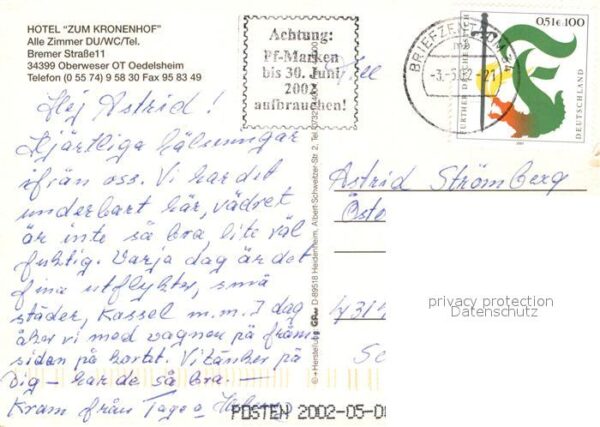 HOTEL "ZUM KRONENHOF"
Alle Zimmer DU/WC/Tel.
Bremer Straße11
34399 Oberweser OT Oedelsheim
Telefon (0 55 74) 9 58 30 Fax 95 83 49
Achtung:
Pf-Marken
bis 30. Juni
2002
aufbrauchen!
BRIEFZENTRUM 34
mb
-3.-5.02-21
0,51€ 100
FÜR DEN
DEUTSCHLAND
Hej Astrid!
Hjärtliga hälsningar
ifrån oss. Vi har det
underbart här, vädret
är inte så bra, lite väl
fuktig. Varja dag är det
fina utflykter, små
städer, Kassel m.m. I dag
åker vi med vagnen på från
sidan på kortet. Vi tänker på
Dig – ha de så bra. —
Kram från Tage o
Astrid Strömberg
Öste
4313
privacy protection
Datenschutz
Herstellung D-89518 Heidenheim, Albert-Schweitzer-Str. 2, Tel. 0732
POSTEN 2002-05-0